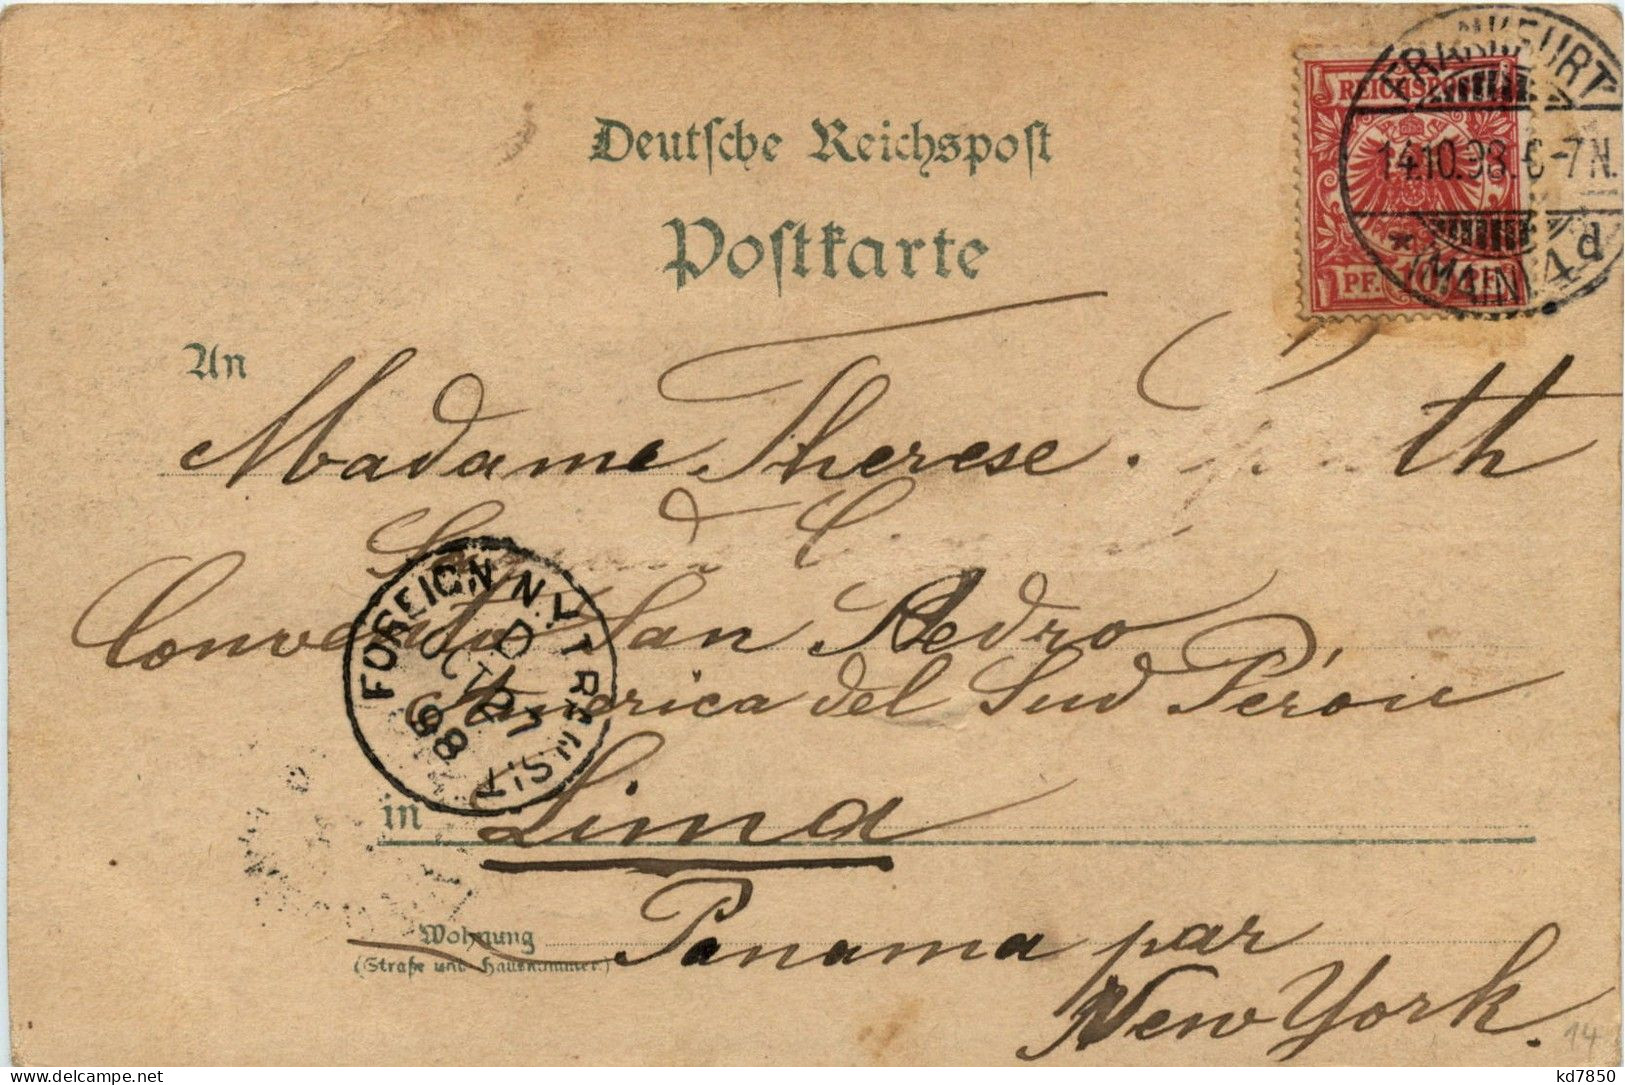 Deutsche Reichspost
Postkarte
REICHSPOST
PF. 10 PF.
FRANKFURT
14.10.98. 6-7N.
* (MAIN) 4d
An
Madame Therese
Convento San Pedro
America del Sud Pérou
FOREIGN N.Y. TRANSIT
D
OCT 27
98
in Lima
Wohnung
(Straße und Hausnummer)
Panama par
New York.
14
kd7850